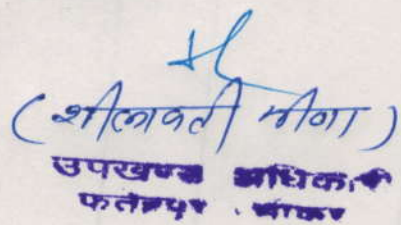 (शीलावती मीणा)
उपखण्ड अधिकारी
फतेहपुर